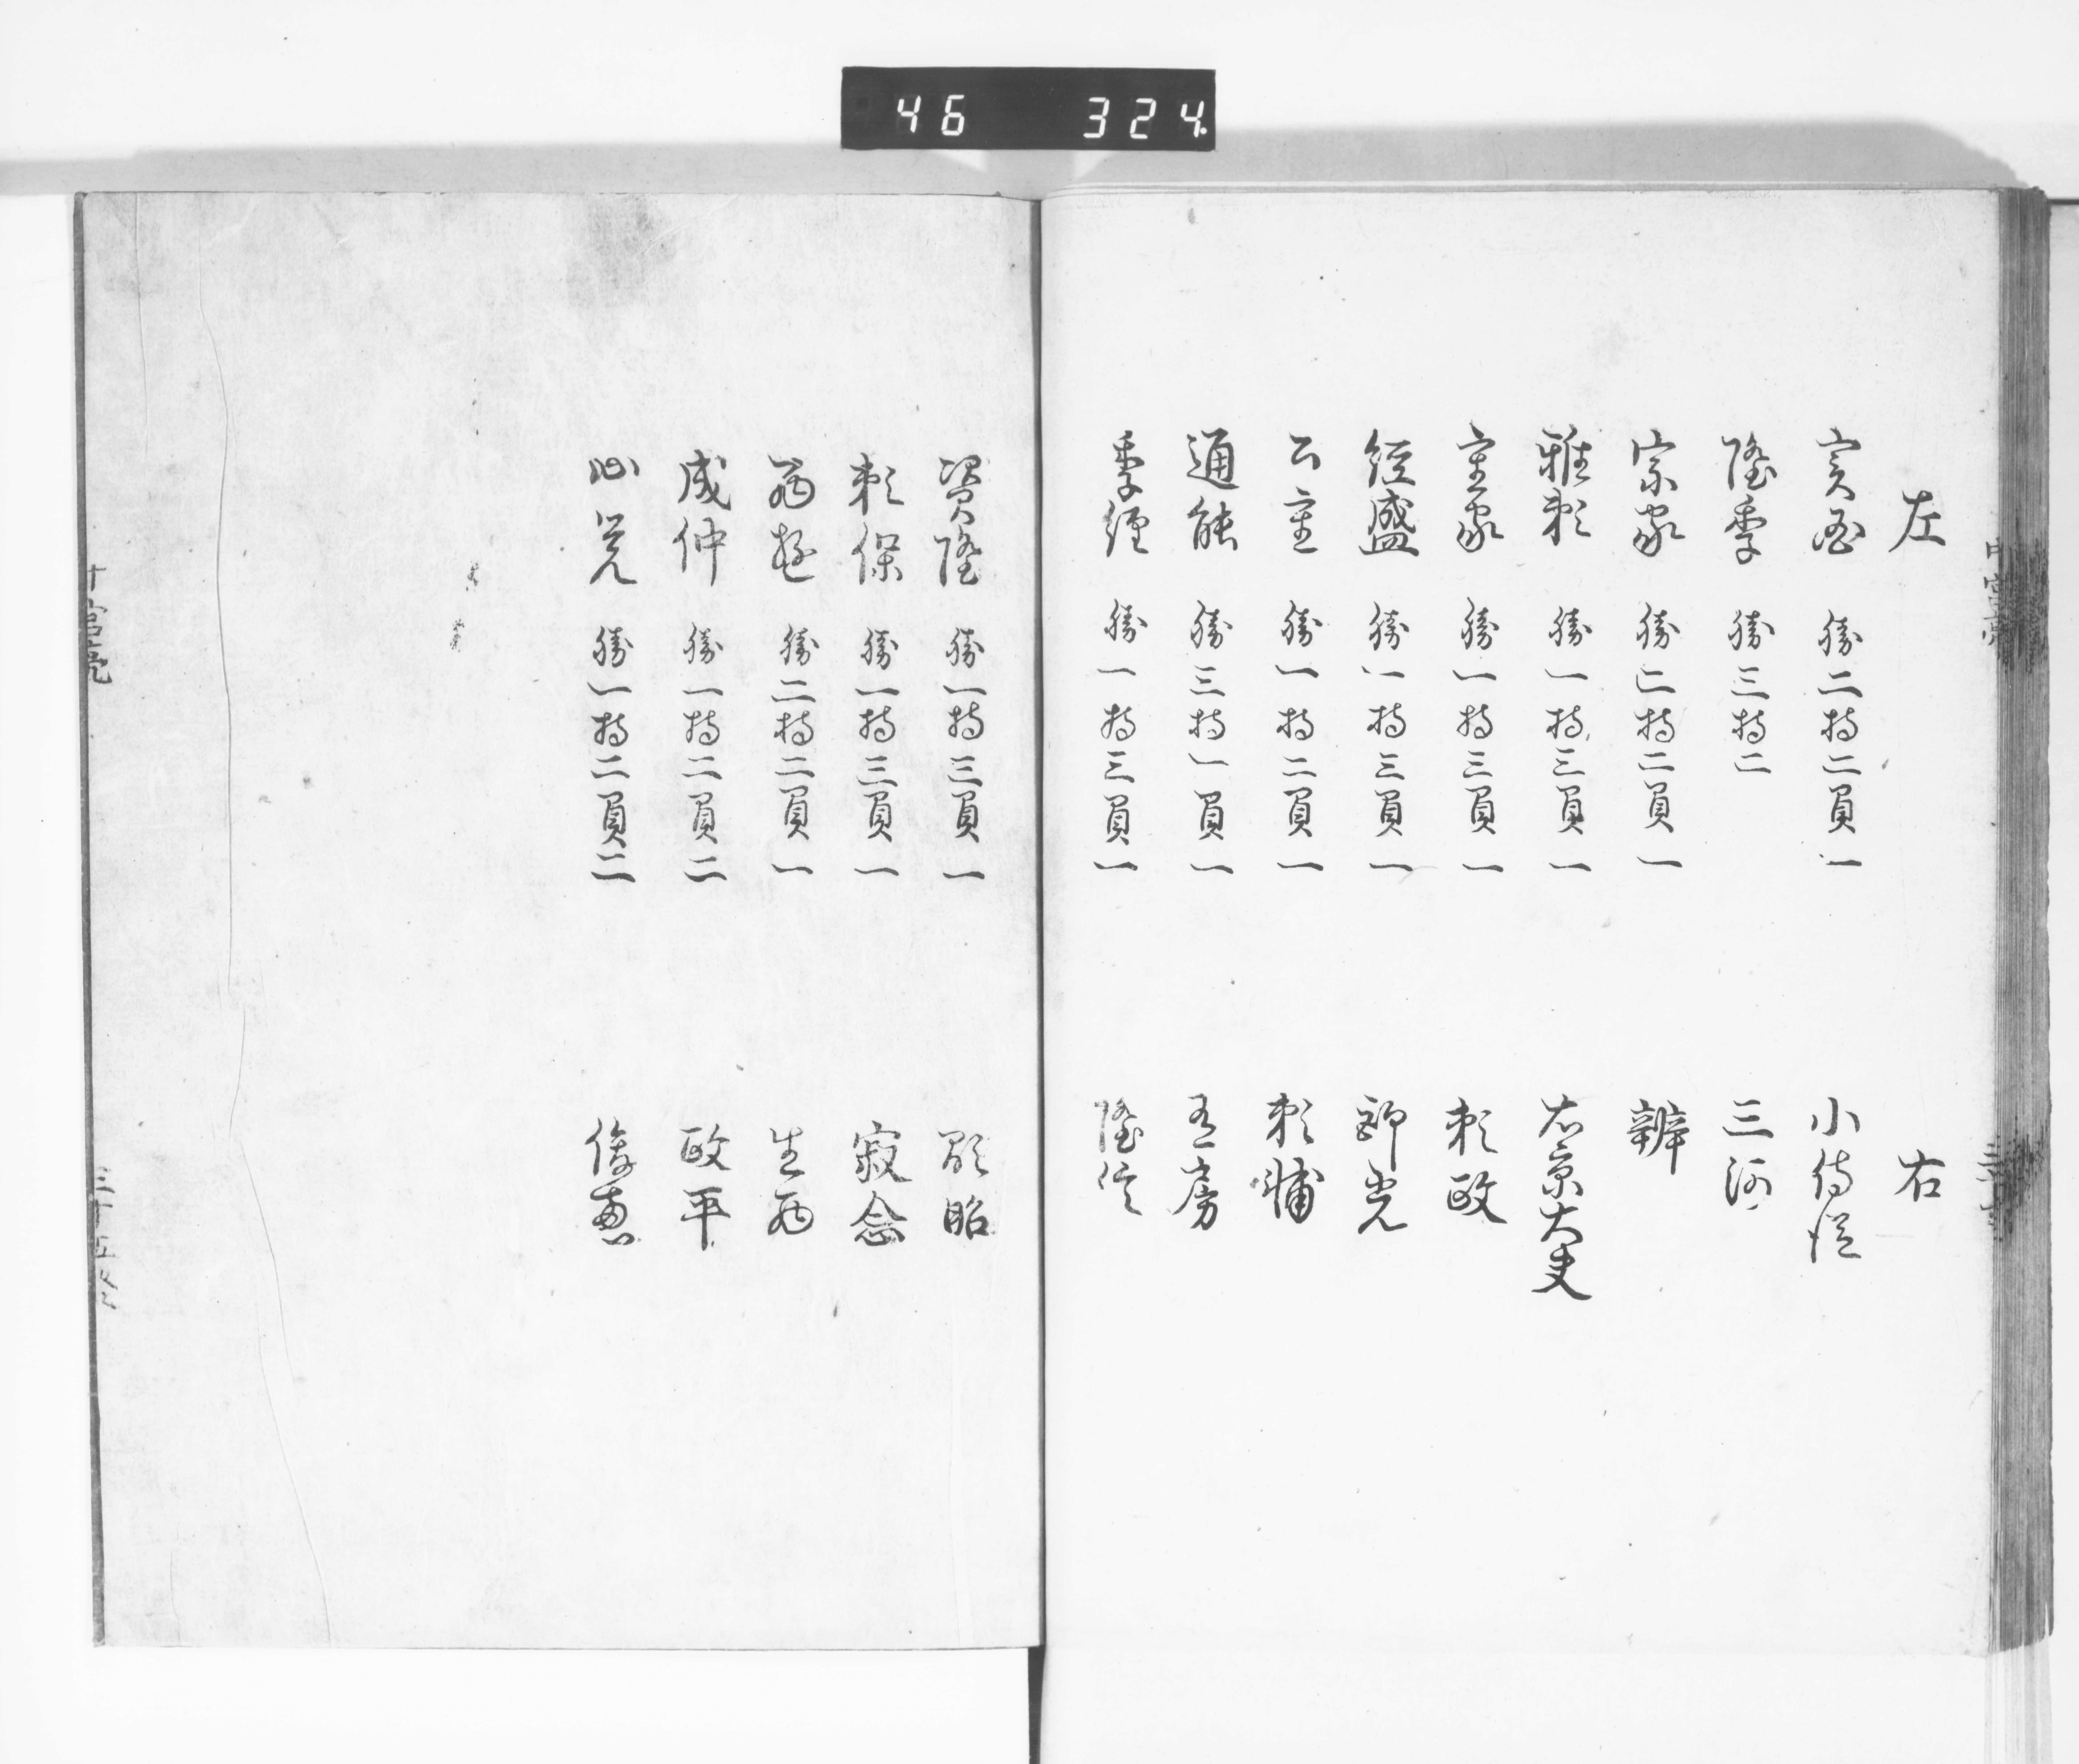 46 324
左 右
実国 勝二持二負一 小侍従
隆季 勝三持二 三河
宗家 勝二持二負一 辨
雅頼 勝一持三負一 右京大夫
重家 勝一持三負一 頼政
経盛 勝一持三負一 師光
公重 勝一持二負一 頼輔
通能 勝三持一負一 有房
季経 勝一持三負一 隆信
資隆 勝一持三負一 顕昭
頼保 勝一持三負一 寂念
西遊 勝二持二負一 生西
成仲 勝一持二負二 政平
心覚 勝一持二負二 俊恵
宮亮
三十五